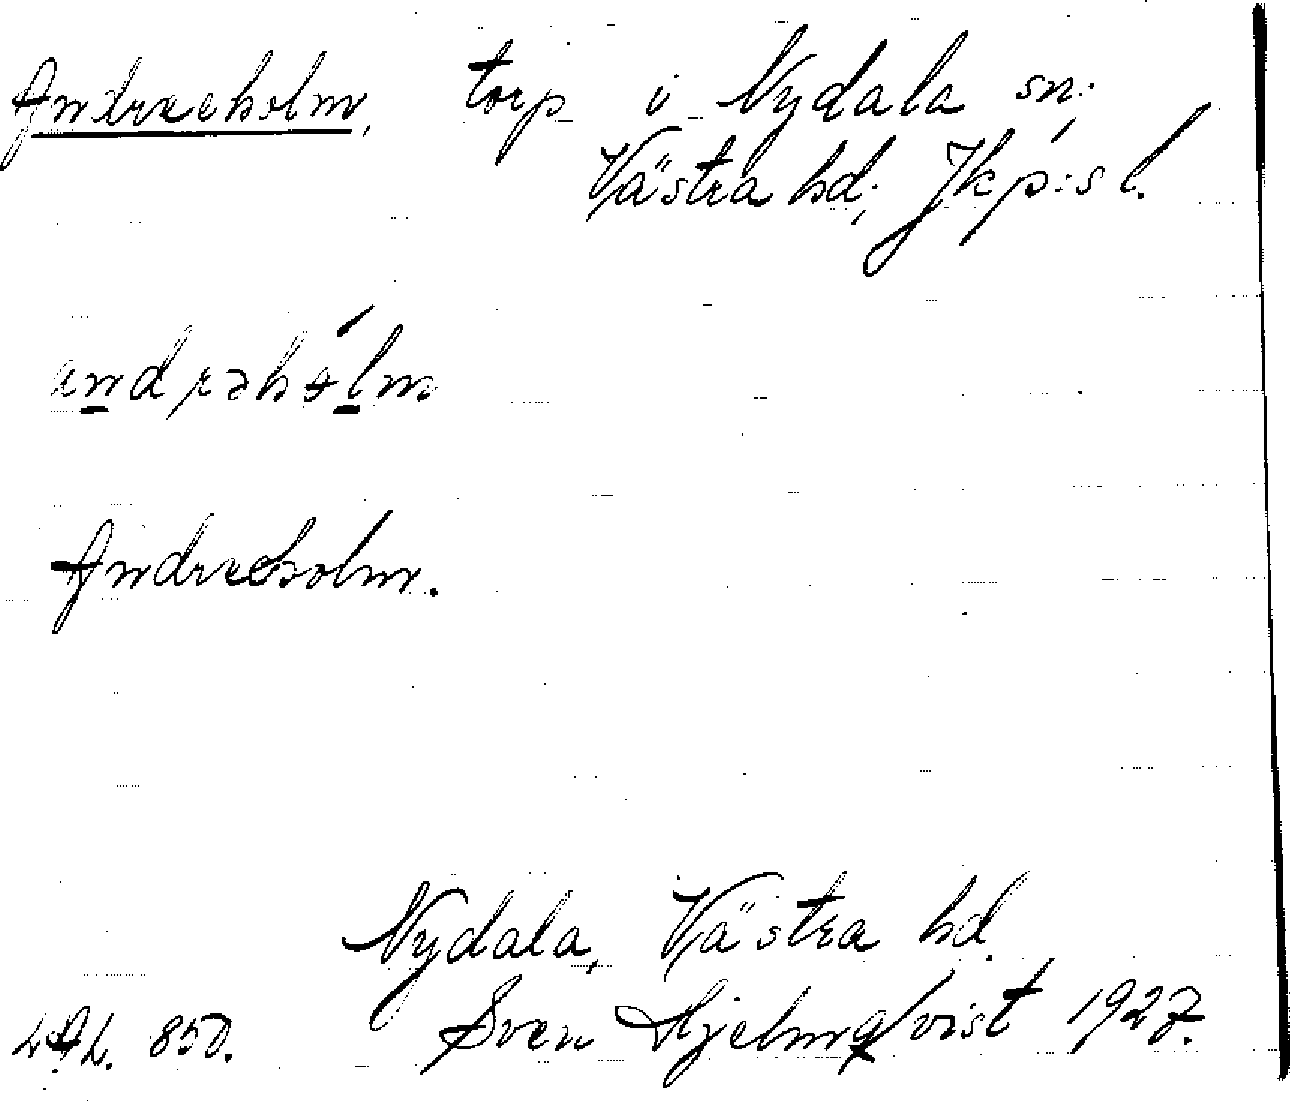 Andreeholm, torp i Nydala sn;
Västra hd; Jkp:s l.
andrəhólm
Andreeholm.
Nydala, Västra hd.
850. Sven Hjelmqvist 1927.